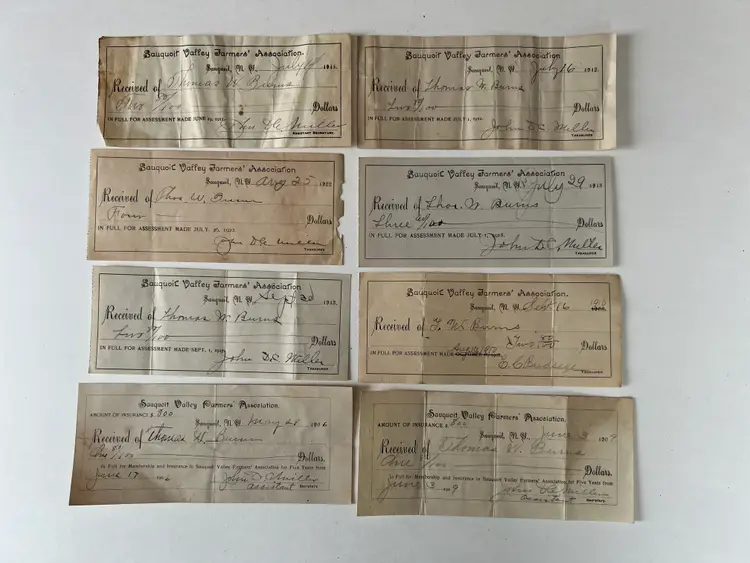 Sauquoit Valley Farmers' Association.
Sauquoit, N. Y., July 1911.
Received of Thomas W. Burns
Dollars
IN FULL FOR ASSESSMENT MADE JUNE
ASSISTANT SECRETARY.
Sauquoit Valley Farmers' Association.
Sauquoit, N. Y., July 16 1913.
Received of Thomas W. Burns
Two /100 Dollars
IN FULL FOR ASSESSMENT MADE JULY 1,
John D.C. Miller
TREASURER
Sauquoit Valley Farmers' Association
Sauquoit, N. Y., Aug 25 1922
Received of Thos. W. Burns
Four Dollars
IN FULL FOR ASSESSMENT MADE JULY 26, 1922.
John D.C. Miller
TREASURER
Sauquoit Valley Farmers' Association
Sauquoit, N. Y., July 29
Received of Thos. W. Burns
Three /100 Dollars
IN FULL FOR ASSESSMENT MADE JULY 1,
John D.C. Miller
TREASURER
Sauquoit Valley Farmers' Association
Sauquoit, N. Y., Sept
Received of Thomas W. Burns
Two /100 Dollars
IN FULL FOR ASSESSMENT MADE SEPT. 1,
John D.C. Miller
TREASURER
Sauquoit Valley Farmers' Association.
Sauquoit, N. Y., 16 1910
Received of T. W. Burns
Two Dollars
IN FULL FOR ASSESSMENT MADE
TREASURER
Sauquoit Valley Farmers' Association.
AMOUNT OF INSURANCE $ 800
Sauquoit, N. Y., May 28 1906
Received of Thomas W. Burns
One /100 Dollars.
in Full for Membership and Insurance in Sauquoit Valley Farmers' Association for Five Years from
June 17 1906
John D.C. Miller
assistant Secretary.
Sauquoit Valley Farmers' Association.
AMOUNT OF INSURANCE $ 800
Sauquoit, N. Y., June 3 1909
Received of Thomas W. Burns
One /100 Dollars.
in Full for Membership and Insurance in Sauquoit Valley Farmers' Association, for Five Years from
June 3 1909
John D.C. Miller
assistant Secretary.